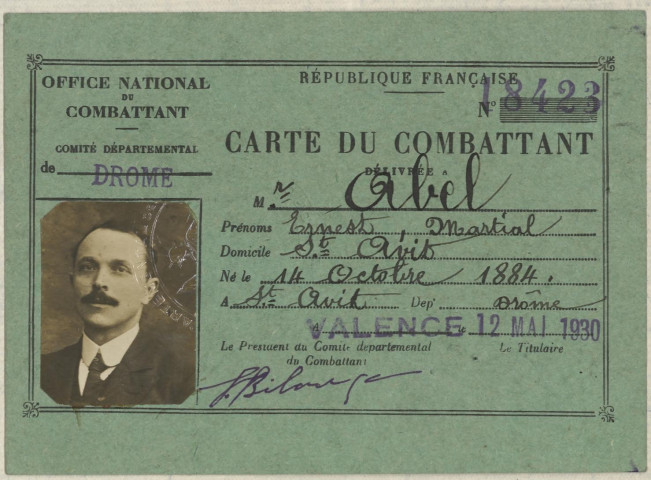 OFFICE NATIONAL
DU
COMBATTANT
COMITÉ DÉPARTEMENTAL
de DROME
RÉPUBLIQUE FRANÇAISE
N° 18423
CARTE DU COMBATTANT
DÉLIVRÉE A
M r Abel
Prénoms Ernest, Martial
Domicile St. Avit
Né le 14 Octobre 1884.
A St. Avit Dep t Drôme
A VALENCE le 12 MAI 1930
Le Président du Comité départemental
du Combattant
Le Titulaire